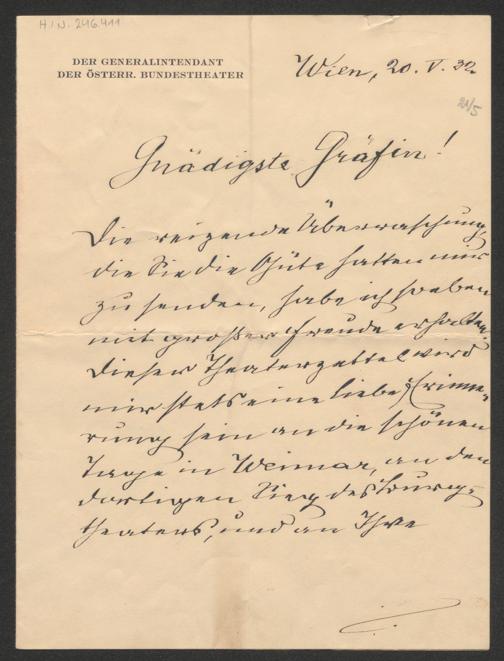 H.I.N. 246.411
DER GENERALINTENDANT
DER ÖSTERR. BUNDESTHEATER
Wien, 20. V. 32.
21/5
Gnädigste Gräfin!
Die reizende Überraschung,
die Sie die Güte hatten mir
zu senden, habe ich soeben
mit großer Freude erhalten.
Dieser Theaterzettel wird
mir stets eine liebe Erinne-
rung sein an die schönen
Tage in Weimar, an den
dortigen Sieg des Burg-
theaters, und an Ihre